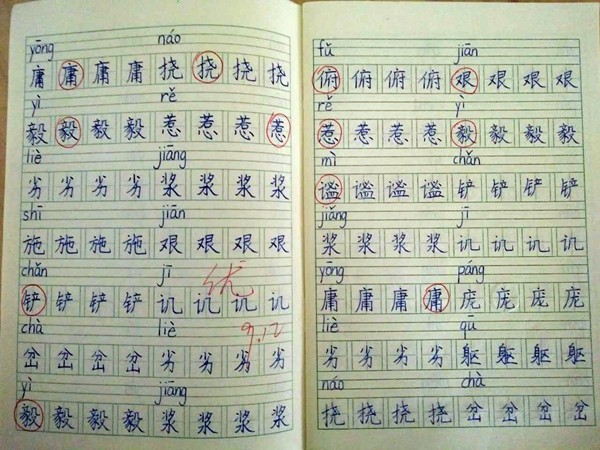 yōng náo
庸 庸 庸 庸 挠 挠 挠 挠
yì rě
毅 毅 毅 毅 惹 惹 惹 惹
liè jiāng
劣 劣 劣 劣 浆 浆 浆 浆
shī jiān
施 施 施 施 艰 艰 艰 艰
chǎn jī
铲 铲 铲 铲 讥 讥 讥 讥
优
chà liè
9.12
岔 岔 岔 岔 劣 劣 劣 劣
yì jiāng
毅 毅 毅 毅 浆 浆 浆 浆
fǔ jiān
俯 俯 俯 俯 艰 艰 艰 艰
rě yì
惹 惹 惹 惹 毅 毅 毅 毅
mì chǎn
谧 谧 谧 谧 铲 铲 铲 铲
jiāng jī
浆 浆 浆 浆 讥 讥 讥 讥
yōng páng
庸 庸 庸 庸 庞 庞 庞 庞
liè qū
劣 劣 劣 劣 躯 躯 躯 躯
náo chà
挠 挠 挠 挠 岔 岔 岔 岔